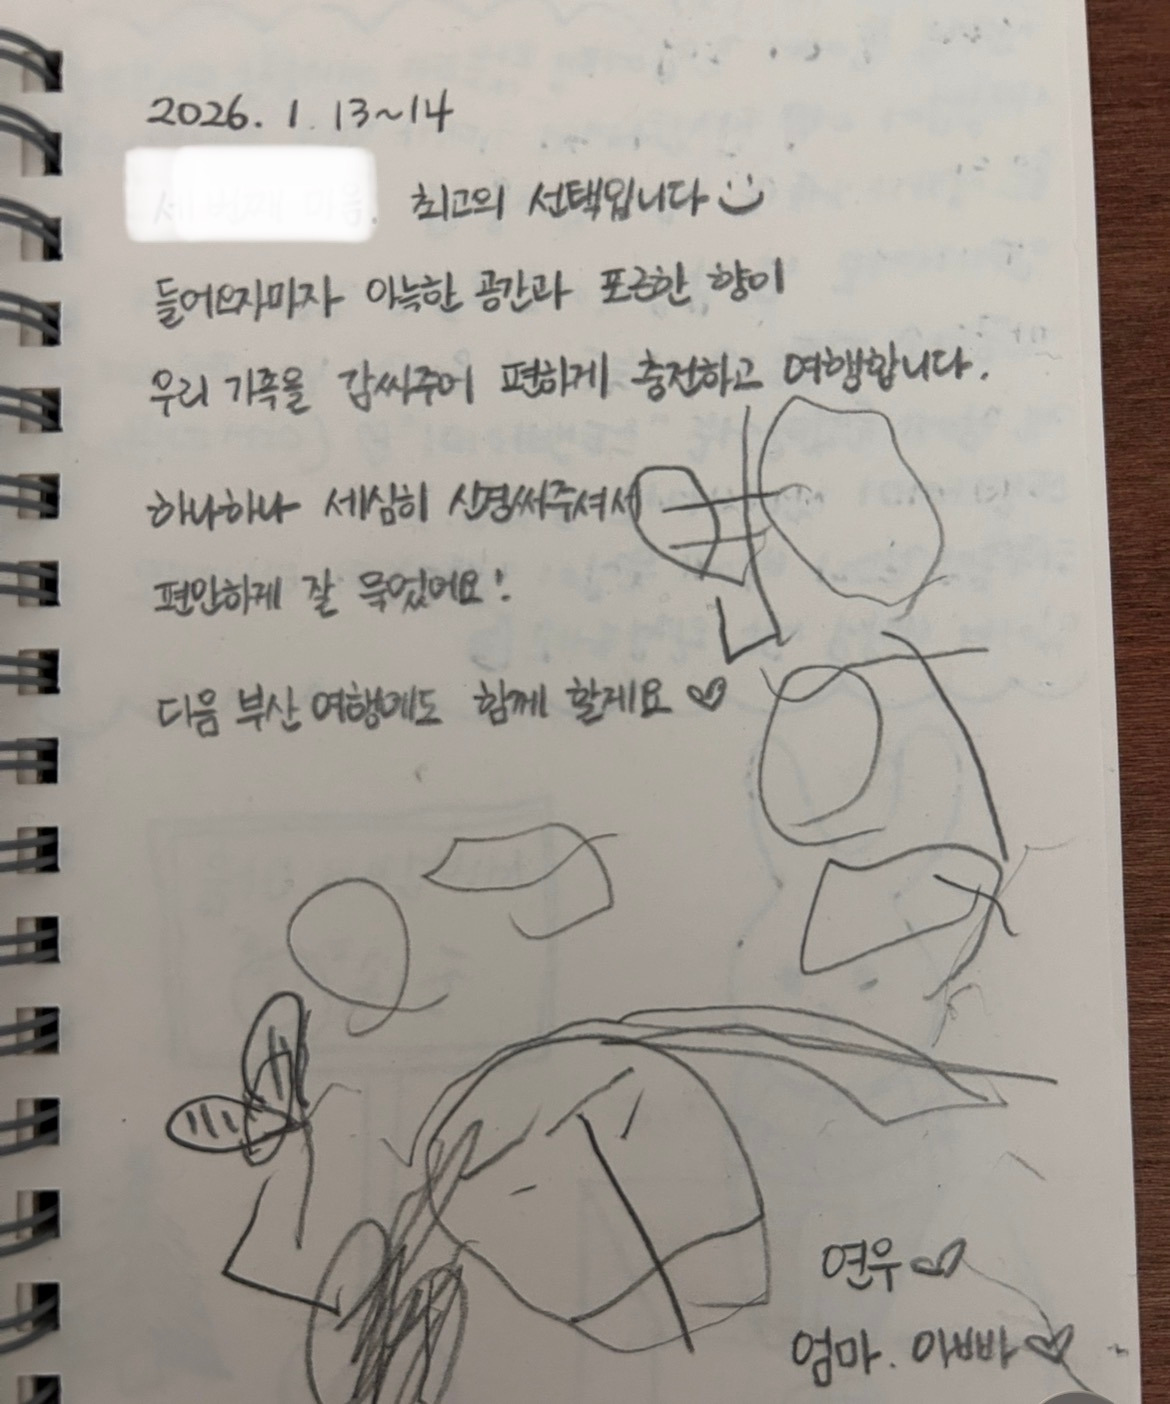 2026. 1. 13~14
최고의 선택입니다
들어오자마자 아늑한 공간과 포근한 향이
우리 가족을 감싸주어 편하게 충전하고 여행합니다.
하나하나 세심히 신경써주셔서
편안하게 잘 묵었어요!
다음 부산 여행에도 함께 할게요 ♡
연우 ♡
엄마. 아빠 ♡